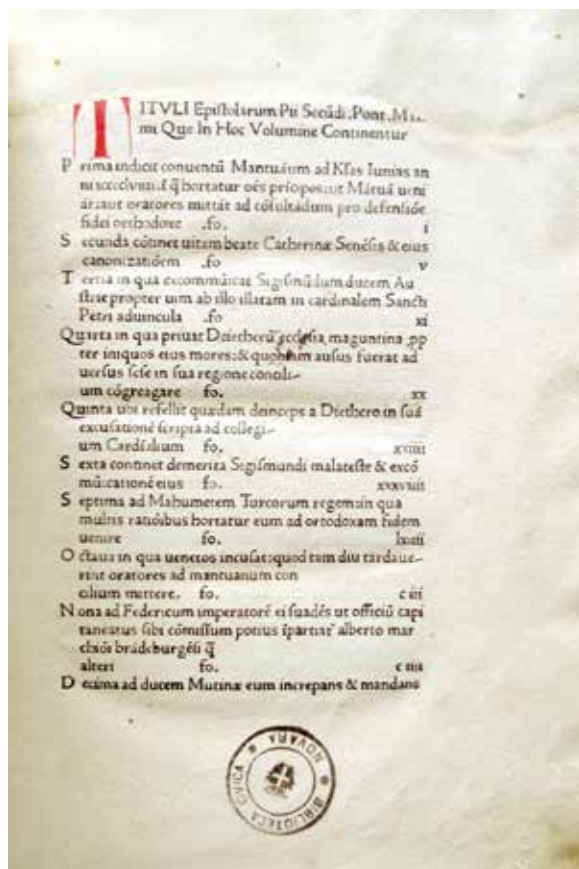 TITVLI Epistolarum Pii Secūdi .Pont. Ma
mi Que In Hoc Volumine Continentur
Prima indicit conuentū Mantuānum ad Klas Iunias an
ni hortatur oēs prīopes: ut Mātuā ueni
āt: aut oratores mittāt ad cōsultādum pro defensiōe
fidei orthodoxe .fo. i
Secunda cōtinet uitam beate Catherinæ Senēsis & eius
canonizatiōem .fo v
Tertia in qua excommūicat Sigismūdum ducem Au
striæ propter uim ab illo illatam in cardinalem Sancti
Petri aduincula .fo xi
Quarta in qua priuat Dietherū ecclesia maguntina .pp
ter iniquos eius mores: & quoniam ausus fuerat ad
uersus sese in sua regione concili-
um cōgreagare fo. xx
Quinta ubi refellit quædam deinceps a Diethero in suā
excusationē scripta ad collegi-
um Cardīalium fo. xviiii
Sexta continet demerita Sigismundi malateste & excō
mūicationē eius fo. xxxviiii
Septima ad Mahumetem Turcorum regem: in qua
multis ratiōibus hortatur eum ad ortodoxam fidem
uenire fo.
Octaua in qua uenetos incusat: quod tam diu tardaue-
rint oratores ad mantuanum con
cilium mittere. fo. c iii
Nona ad Federicum imperatorē ei suadēs ut officiū capi
taneatus sibi cōmissum potius īpartiat alberto mar
chiōi brādēburgēsi q̄
alteri fo. c iiii
Decima ad ducem Mutinæ eum increpans & mandans
BIBLIOTECA CIVICA * NOVARA *